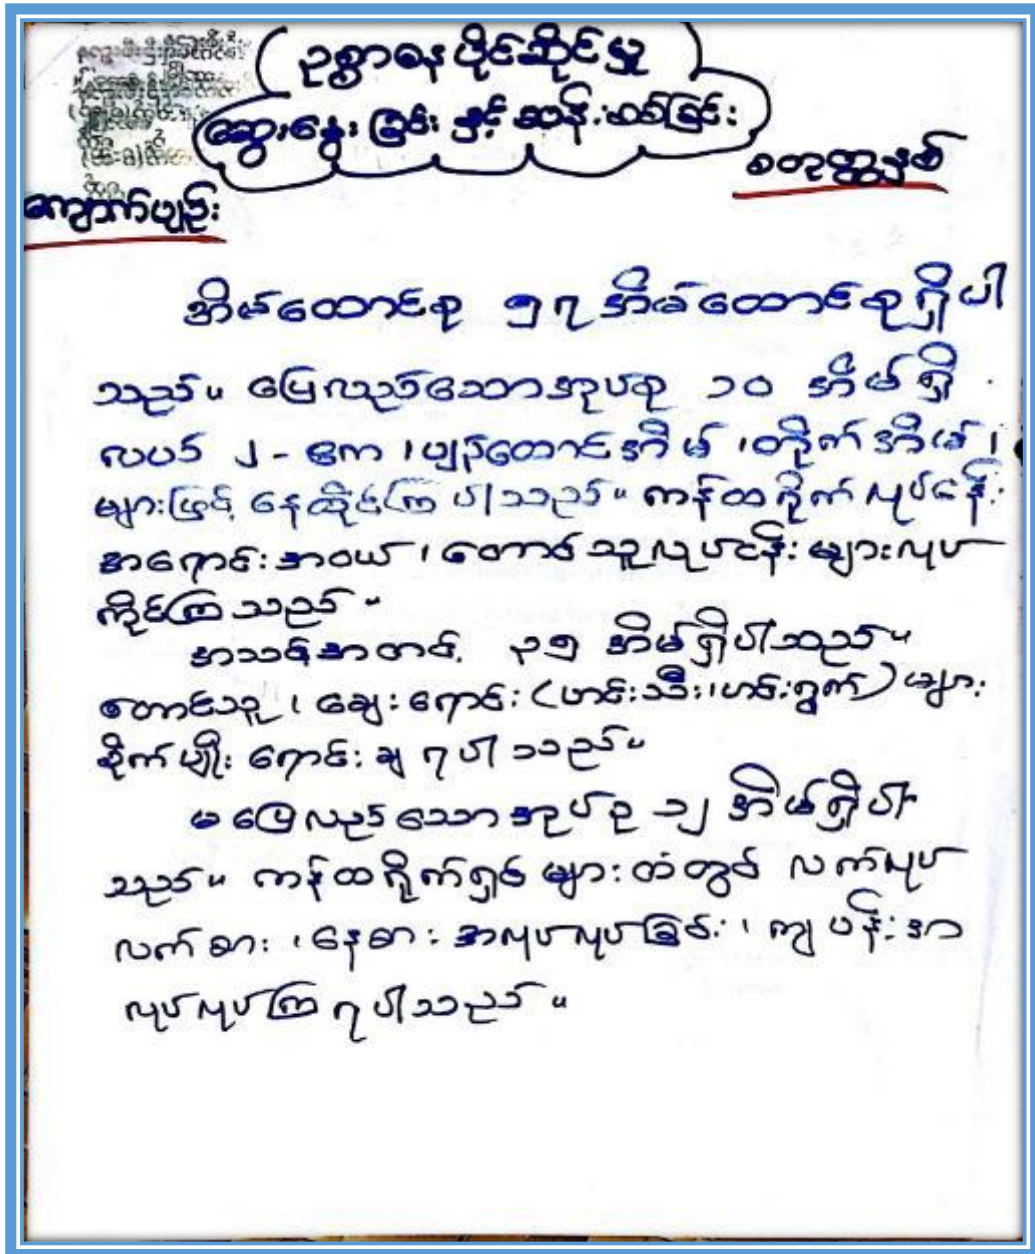 ဥစ္စာဓနပိုင်ဆိုင်မှု
ဆွေးနွေးခြင်းနှင့် ဆန်းစစ်ခြင်း
စတုတ္ထနှစ်
ကျောက်ပျဉ်း
အိမ်ထောင်စု ၅၇ အိမ်ထောင်စုရှိပါ
သည်။ ပြေလည်သောအုပ်စု ၁၀ အိမ်ရှိ
လယ် ၂-ဧက ၊ပျဉ်ထောင်အိမ် ၊တိုက်အိမ် ၊
များဖြင့် နေထိုင်ကြပါသည်။ ကန်ထရိုက်လုပ်ငန်း
အရောင်းအဝယ် ၊ တောင်သူလုပ်ငန်းများလုပ်
ကိုင်ကြသည်။
အသင့်အတင့် ၃၅ အိမ်ရှိပါသည်။
တောင်သူ ၊ ဈေးရောင်း (ဟင်းသီး၊ဟင်းရွက်) များ
စိုက်ပျိုး ရောင်းချ ရပါသည်။
မပြေလည်သောအုပ်စု ၁၂ အိမ်ရှိပါ
သည်။ ကန်ထရိုက်ရှင်များထံတွင် လက်လုပ်
လက်စား ၊နေ့စား အလုပ်လုပ်ခြင်း ၊ ကျပန်းအ
လုပ်လုပ်ကြရပါသည်။